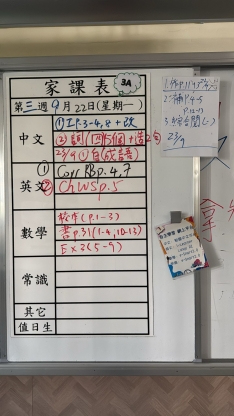 家課表 3A
第三週9月22日(星期一)
中文
① 工P.3-4, 8 + 改
② 詞(四)5個+造2句
23/9 ① 自(成語)
英文
① Corr RB p.4, 7
② Ch WS p.5
數學
校作(P.1-3)
書p.31(1-4, 10-13)
Ex 2(5-9)
常識
其它
值日生
2. 補P.4-5
P.12-13
23/9